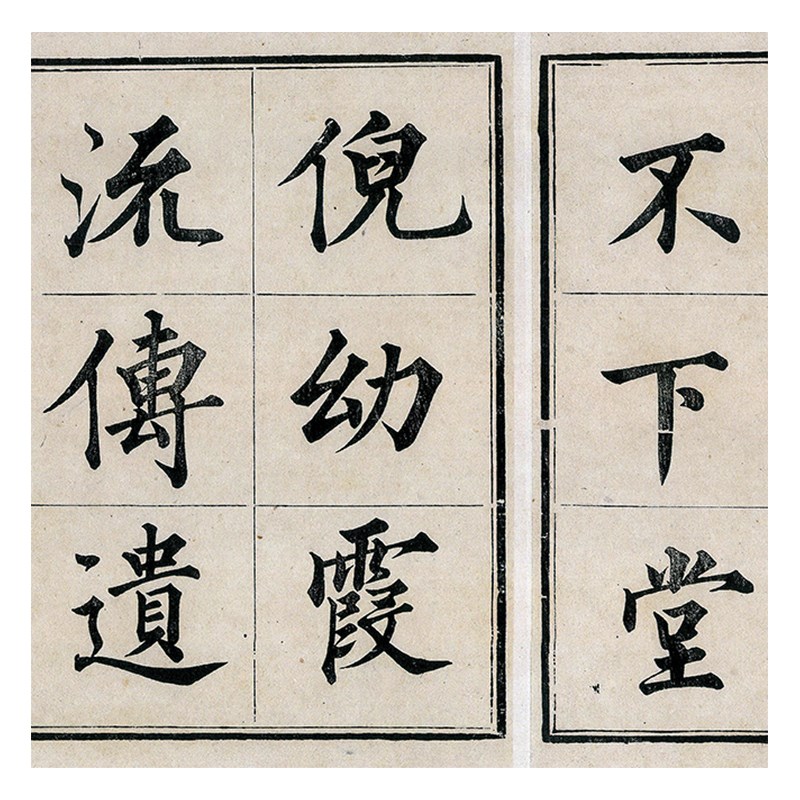 不下堂
倪幼霞
流傳遺